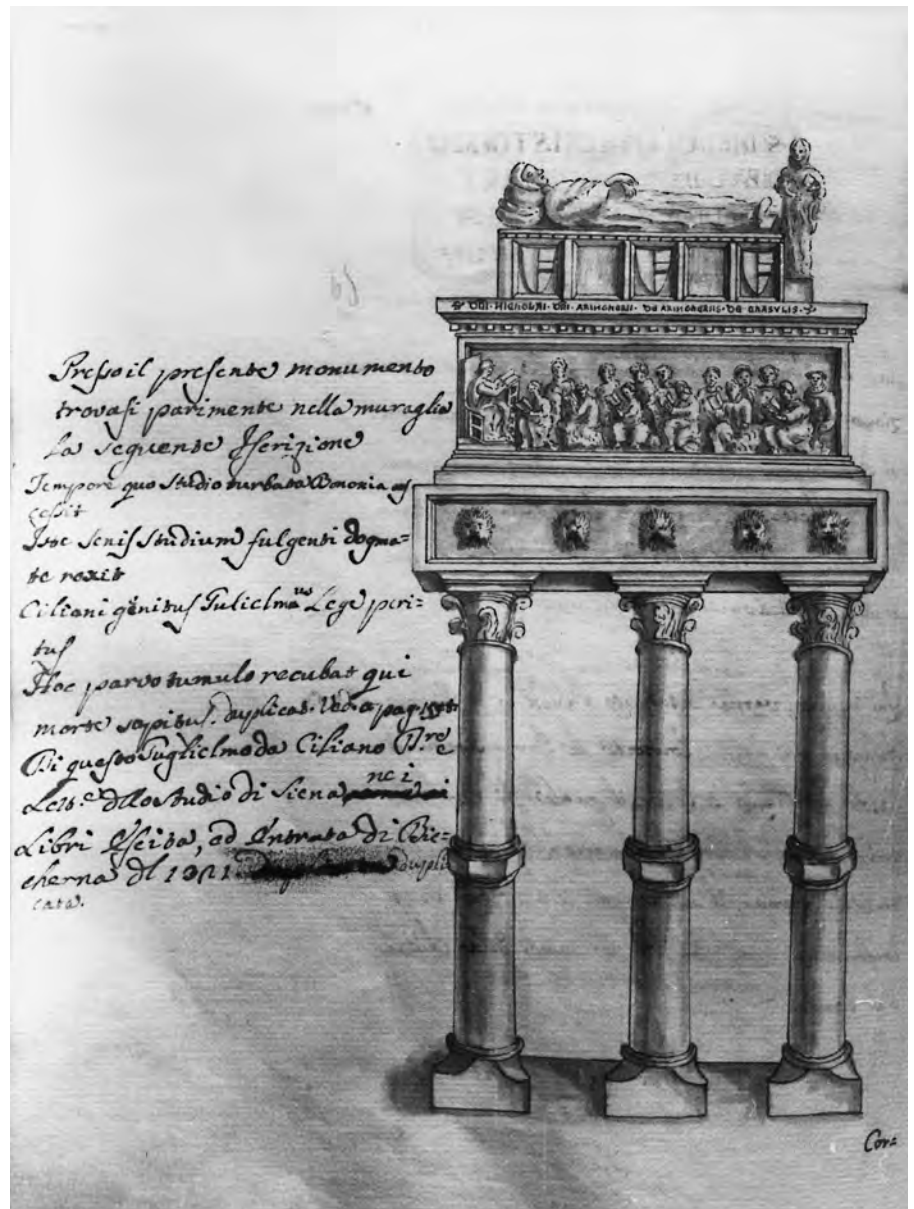 DNI · NICHOLAI · DNI · ARINGHERII · DE ARINGHERIIS · DE CASVLIS ·
Presso il presente monumento
trovasi parimente nella muraglia
la seguente Iscrizione
Tempore quo studio turbata Bononia
cessit
Hoc Senis studium fulgenti dogma=
te rexit
Ciliani genitus Gulielmus Lege peri=
tus
Hoc parvo tumulo recubat qui
morte sopitus. duplicat. Ved. a pag.
Di questo Guglielmo da Ciliano P.re
Lett.e dello Studio di Siena nei
Libri Escita, ed Entrata di Bic=
cherna dl 1321 dupli
cata.
Cor=